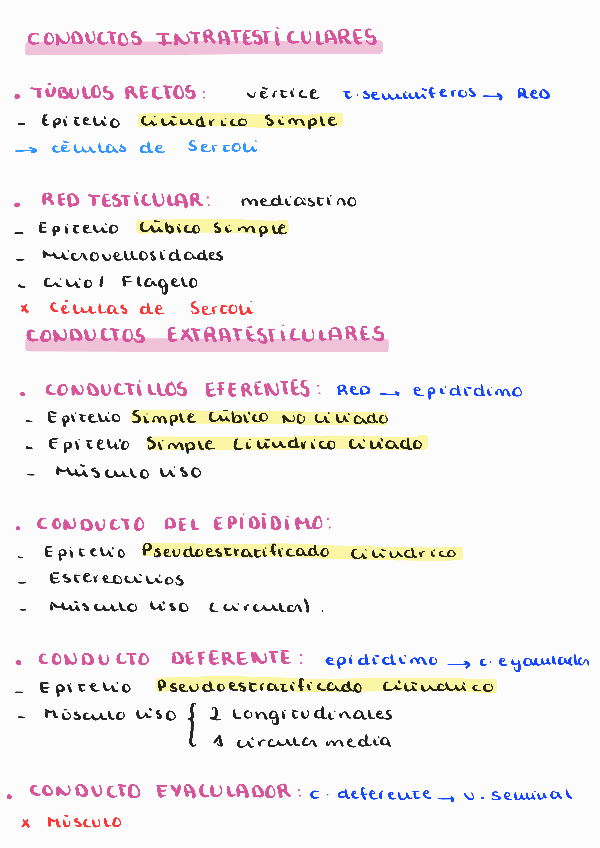 CONDUCTOS INTRATESTICULARES
• TÚBULOS RECTOS: vértice t. seminíferos → Red
- Epitelio cilíndrico simple
→ células de Sertoli
• RED TESTICULAR: mediastino
- Epitelio cúbico simple
- Microvellosidades
- Cilio / Flagelo
x Células de Sertoli
CONDUCTOS EXTRATESTICULARES
• CONDUCTILLOS EFERENTES: Red → epidídimo
- Epitelio simple cúbico no ciliado
- Epitelio simple cilíndrico ciliado
- Músculo liso
• CONDUCTO DEL EPIDÍDIMO:
- Epitelio Pseudoestratificado cilíndrico
- Estereocilios
- Músculo liso (circular).
• CONDUCTO DEFERENTE: epidídimo → c. eyaculador
- Epitelio Pseudoestratificado cilíndrico
- Músculo liso { 2 longitudinales
1 circular media
• CONDUCTO EYACULADOR: c. deferente → v. seminal
x Músculo